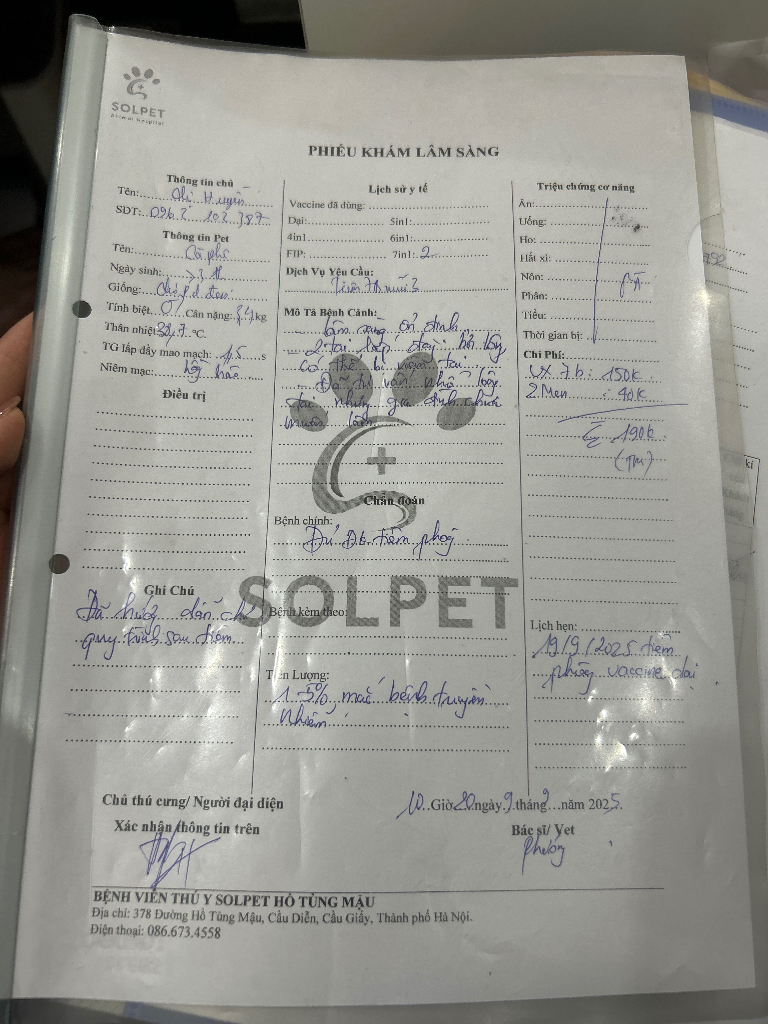 SOLPET
Animal Hospital
PHIẾU KHÁM LÂM SÀNG
Thông tin chủ
Tên: Chị Huyền
SDT: 0962 102 787
Thông tin Pet
Tên: Cà phê
Ngày sinh: >3 th
Giống:
Tính biệt: ♂ Cân nặng: kg
Thân nhiệt: °C.
TG lấp đầy mao mạch: 1,5 s
Niêm mạc: hồng hào
Điều trị
Ghi Chú
Đã hướng dẫn chủ
quy trình sau tiêm
Lịch sử y tế
Vaccine đã dùng:
Dại: 5in1:
4in1 6in1:
FIP: 7in1: 2
Dịch Vụ Yêu Cầu:
Tiêm 7b mũi 2
Mô Tả Bệnh Cảnh:
Lâm sàng ổn định
2 tai bị rụng lông
có thể bị viêm tai
Đã tư vấn nhổ lông
tai nhưng gia đình chưa
muốn làm
Chẩn đoán
Bệnh chính:
Đủ Đk tiêm phòng
SOLPET
Bệnh kèm theo:
Tiên Lượng:
1-5% mắc bệnh truyền
nhiễm
Triệu chứng cơ năng
Ăn:
Uống:
Ho:
Hắt xì:
Nôn:
Phân:
Tiểu:
Thời gian bị:
Chi Phí:
vx 7b: 150k
2 Men : 40k
Σ 190k
(TM)
Lịch hẹn:
19/9/2025 tiêm
phòng vaccine dại
Chủ thú cưng/ Người đại diện
Xác nhận thông tin trên
10 Giờ 20 ngày 9 tháng 9 năm 2025.
Bác sĩ/ Vet
Phương
BỆNH VIỆN THÚ Y SOLPET HỒ TÙNG MẬU
Địa chỉ: 378 Đường Hồ Tùng Mậu, Cầu Diễn, Cầu Giấy, Thành phố Hà Nội.
Điện thoại: 086.673.4558